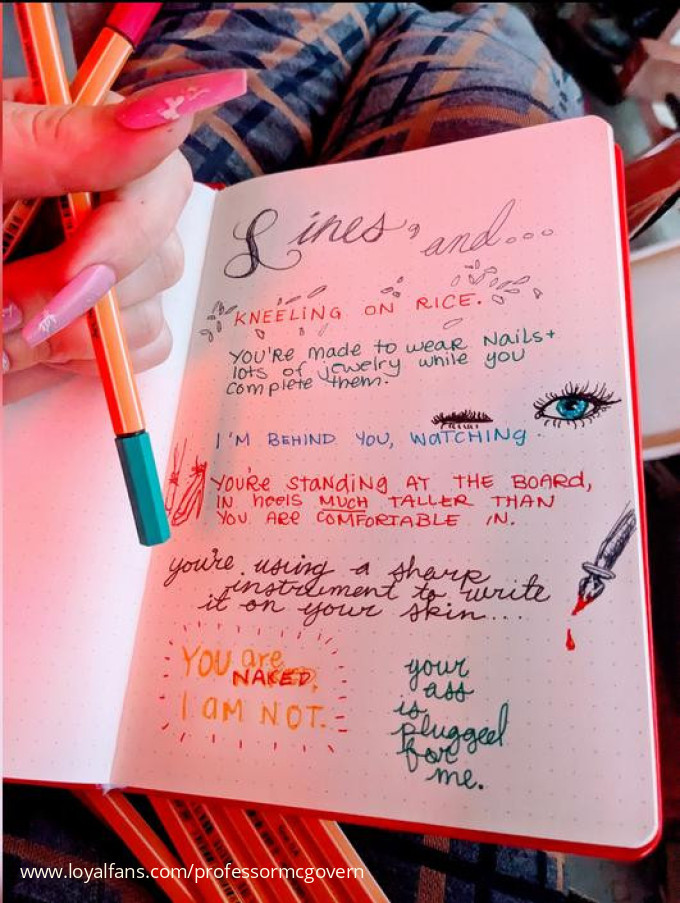 Lines, and...
KNEELING ON RICE.
YOU'Re made to weaR Nails+
lots of jewelry while you
complete them.
I'M BEHIND YOU, WATCHING.
YOU'Re standing AT THE BOARD,
IN heels MUCH TALLER THAN
YOU ARE COMFORTABLE IN.
you're using a sharp
instrument to write
it on your skin...
YOU are
NAKED,
I aM NOT.
your
ass
is
plugged
for
me.
www.loyalfans.com/professormcgovern